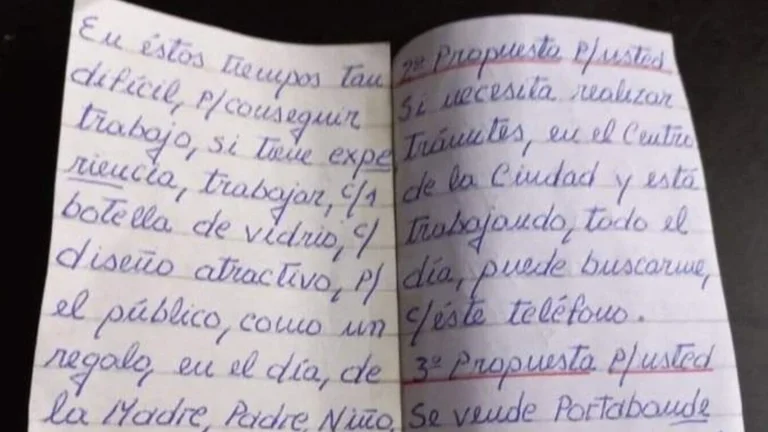 En éstos tiempos tan
difícil, p/conseguir
trabajo, si tiene expe
riencia, trabajar, c/1
botella de vidrio, c/
diseño atractivo, p/
el público, como un
regalo, en el día, de
la Madre, Padre, Niño,
2ª Propuesta p/usted
Si necesita realizar
Trámites, en el Centro
de la Ciudad y está
trabajando, todo el
día, puede buscarme,
c/éste teléfono.
3º Propuesta p/usted
Se vende Portabande